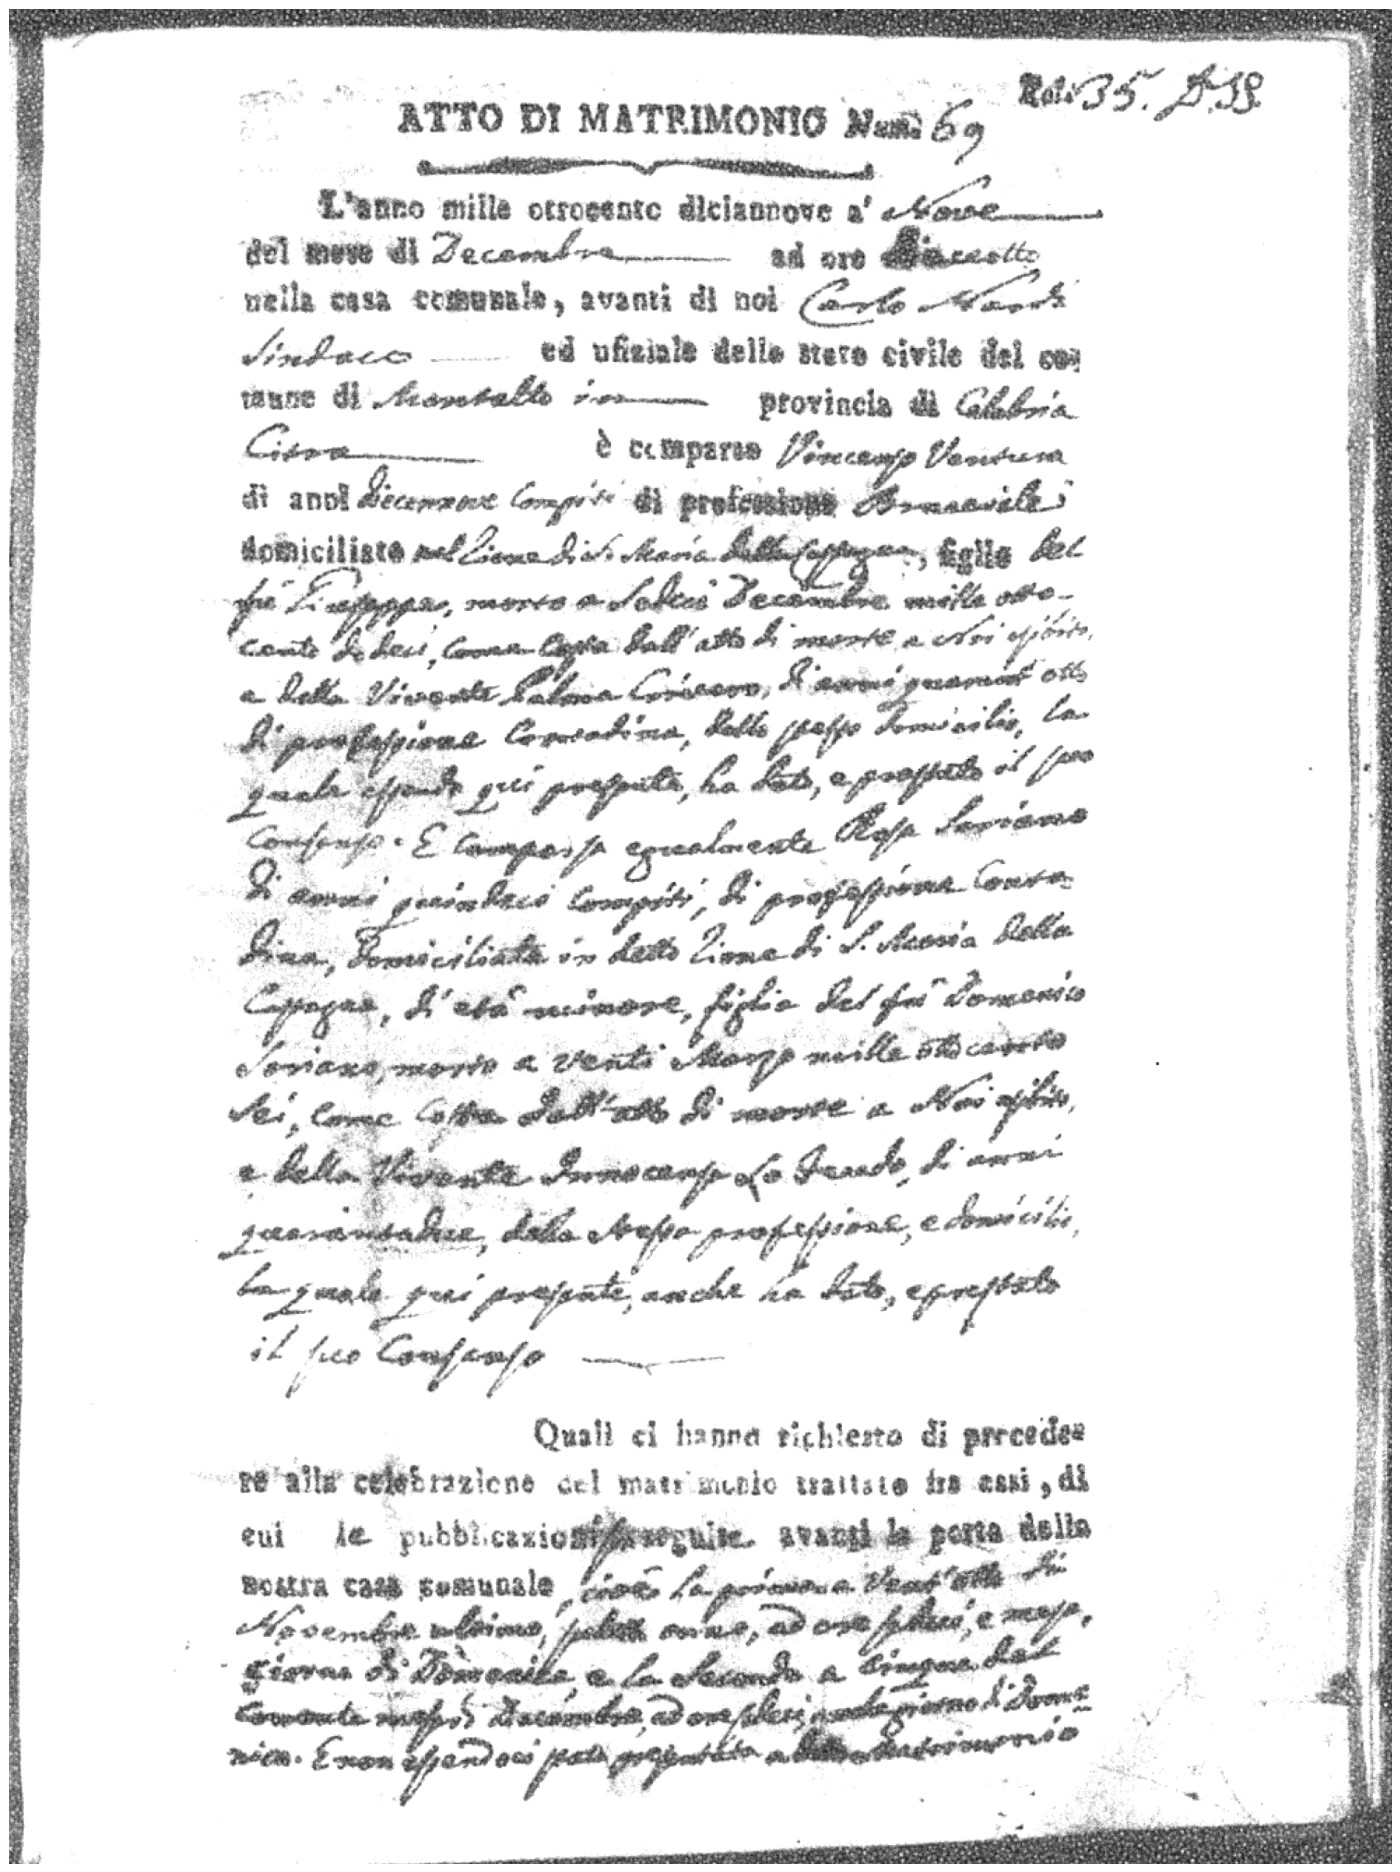 Rol: 35. D. 38.
ATTO DI MATRIMONIO Num: 69
L'anno mille ottocento diciannove a' Nove
del mese di Decembre ad ore Dieciotto
nella casa comunale, avanti di noi Carlo Nardi
Sindaco ed ufiziale dello stato civile del co-
mune di Montalto in provincia di Calabria
Citra è comparso Vincenzo Ventura
di anni Diecennove compiti di professione Bracciale
domiciliato nel Zione di S. Maria della, figlio del
fù Giuseppe, morto a Sedeci Decembre mille otto-
cento dodeci, come costa dall'atto di morte a Noi esibito,
e della Vivente Palma, di anni quarant'otto
di professione Contadina, dello stesso domicilio, la
quale essendo quì presente, ha dato, e prestato il suo
consenso. E comparsa egualmente Rosa Soriano
di anni quindeci compiti, di professione Conta-
dina, domiciliata in detto Zione di S. Maria della
di età minore, figlia del fù Domenico
Soriano, morto a Venti Marzo mille ottocento
sei, come costa dall'atto di morte a Noi esibito,
e della Vivente Innocenza Lo Feudo, di anni
quarantadue, della stessa professione, e domicilio,
la quale quì presente, anche ha dato, e prestato
il suo Consenso
Quali ci hanno richiesto di procede-
re alla celebrazione del matrimonio trattato fra essi, di
cui le pubblicazioni seguite avanti la porta della
nostra casa comunale, cioè la prima a Vent'otto di
Novembre ultimo, anno, ad ore sedeci, e mezo,
giorno di Domenica, e la seconda a cinque del
corrente mese di Decembre, ad ore sedeci, anche giorno di Dome-
nica. E non essendoci stata presentata a detto Matrimonio